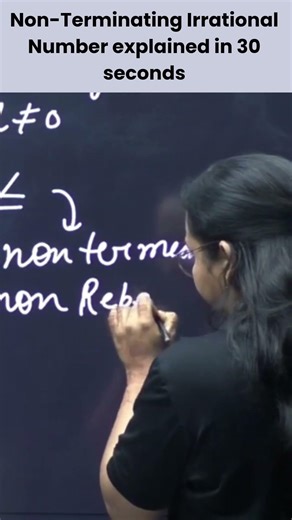 Non-Terminating Irrational
Number explained in 30
seconds
≠0
non
non